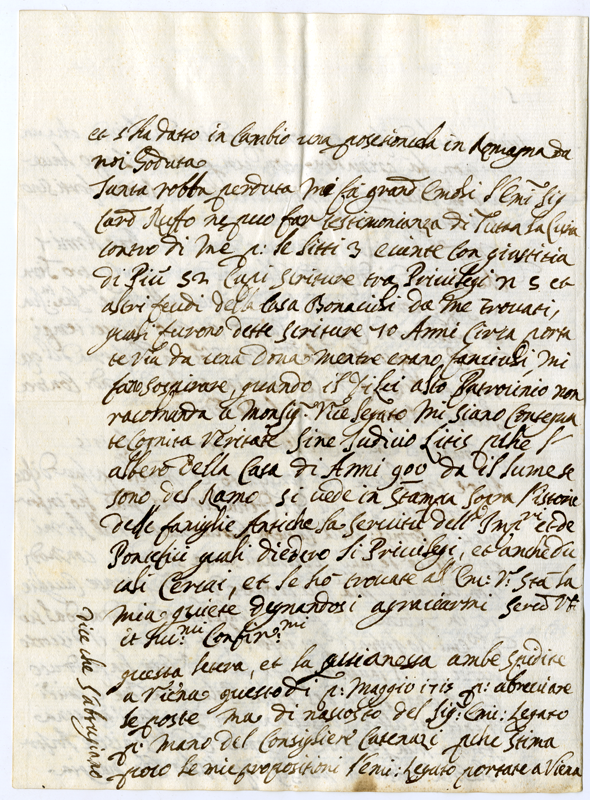 et s'ha datto in Cambio una posesioncela in Romagna da
noi Goduta
Tanta robba perduta mi fa grand Emoli l'Emi: Sig
Card: Ruffo ne puo far testimonianza di Tutta la Curia
contro di Me p: le Litti 3 e uante con giustitia
di Più 52 Capi Scriture tra Privilegi n 5 et
altri feudi della Casa Bonacursi da me trovati,
quali furono dette Scriture 40 Anni Circa porta
te via da una Dona mentre erano fanciulli mi
fano sospirare, quando il alto Patrocinio non
racomanda a Monsig: Vice legato mi siano Consegna
te Cognita Veritate Sine Iudicio Litis pche l'
albero della Casa di Anni 900 da il lume se
sono del Ramo si vede in Stampa sopra l'istorie
delle famiglie Antiche la servitù dell' Imp: et de
Pontefici quali diedero li Privilegi, et anche Du
cali Cercai, et se ho trovate all' Em: V: Stà la
mia quiete degnandosi agraciarmi
it Confir: mi
questa letera, et la ambe spedite
a Viena questo dì p: Maggio 1713 p: abreviare
le poste ma di nascosto del Sig: Emi: Legato
p: mano del Consigliere Catenazi pche Stima
poco le mie propositioni l'emi: Legato portate a Viena
dice che s'abrugiano